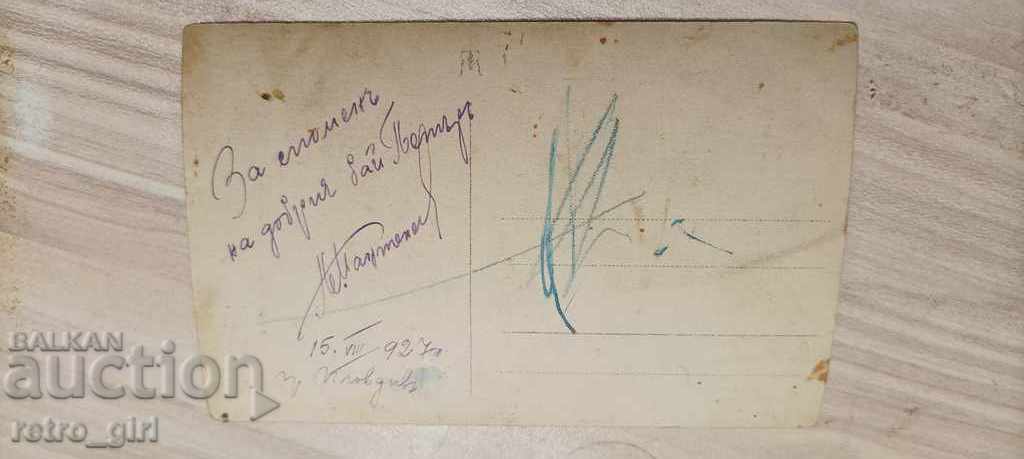 За споменъ
на добрия бай Петъръ
15. VIII 927 г.
гр Пловдивъ
BALKAN
auction
retro_girl